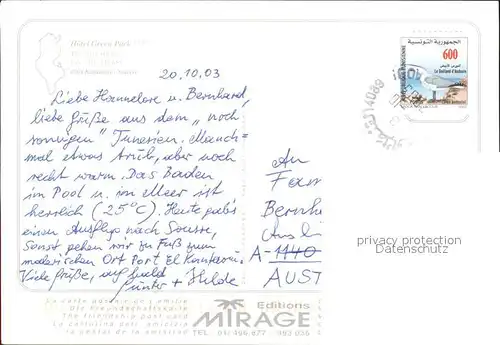 Hôtel Green Park
20.10.03
Liebe Hannelore u. Bernhard,
liebe Grüße aus dem „noch
sonnigen" Tunesien. Manch-
mal etwas trüb, aber noch
recht warm. Das Baden
im Pool u. im Meer ist
herrlich (25°C). Heute gab's
einen Ausflug nach Sousse,
Sonst gehen wir zu Fuß zum
malerischen Ort Port El Kantaoui.
Viele Grüße, auf bald
Günter + Hilde
An
Fam
Bernh
A-1140
AUST
الجمهورية التونسية
REPUBLIQUE TUNISIENNE
600
Le Goéland d'Audouin
4089
privacy protection
Datenschutz
La carte postale de l'amitié
Die Freundschaftskarte
The friendship post card
La cartolina dell' amicizia
Editions
MIRAGE